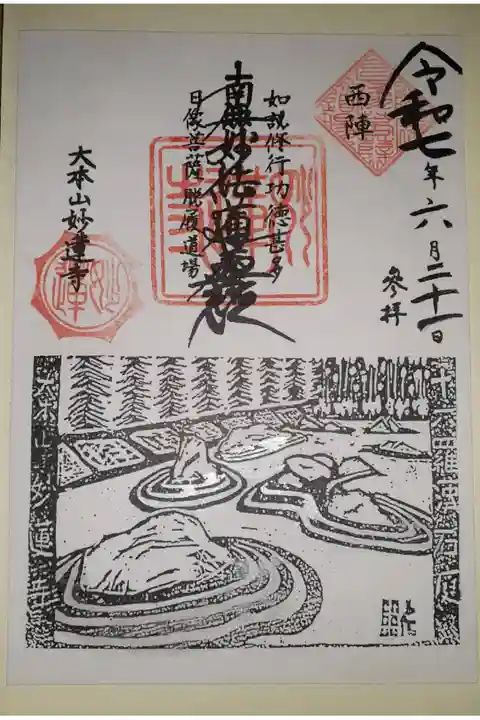 令和七年六月二十一日
參拝
西陣
如説修行功徳甚多
南無妙法蓮華経
日像菩薩脱履道場
大本山妙蓮寺
妙蓮寺
妙蓮
十六羅漢石庭
大本山妙蓮寺